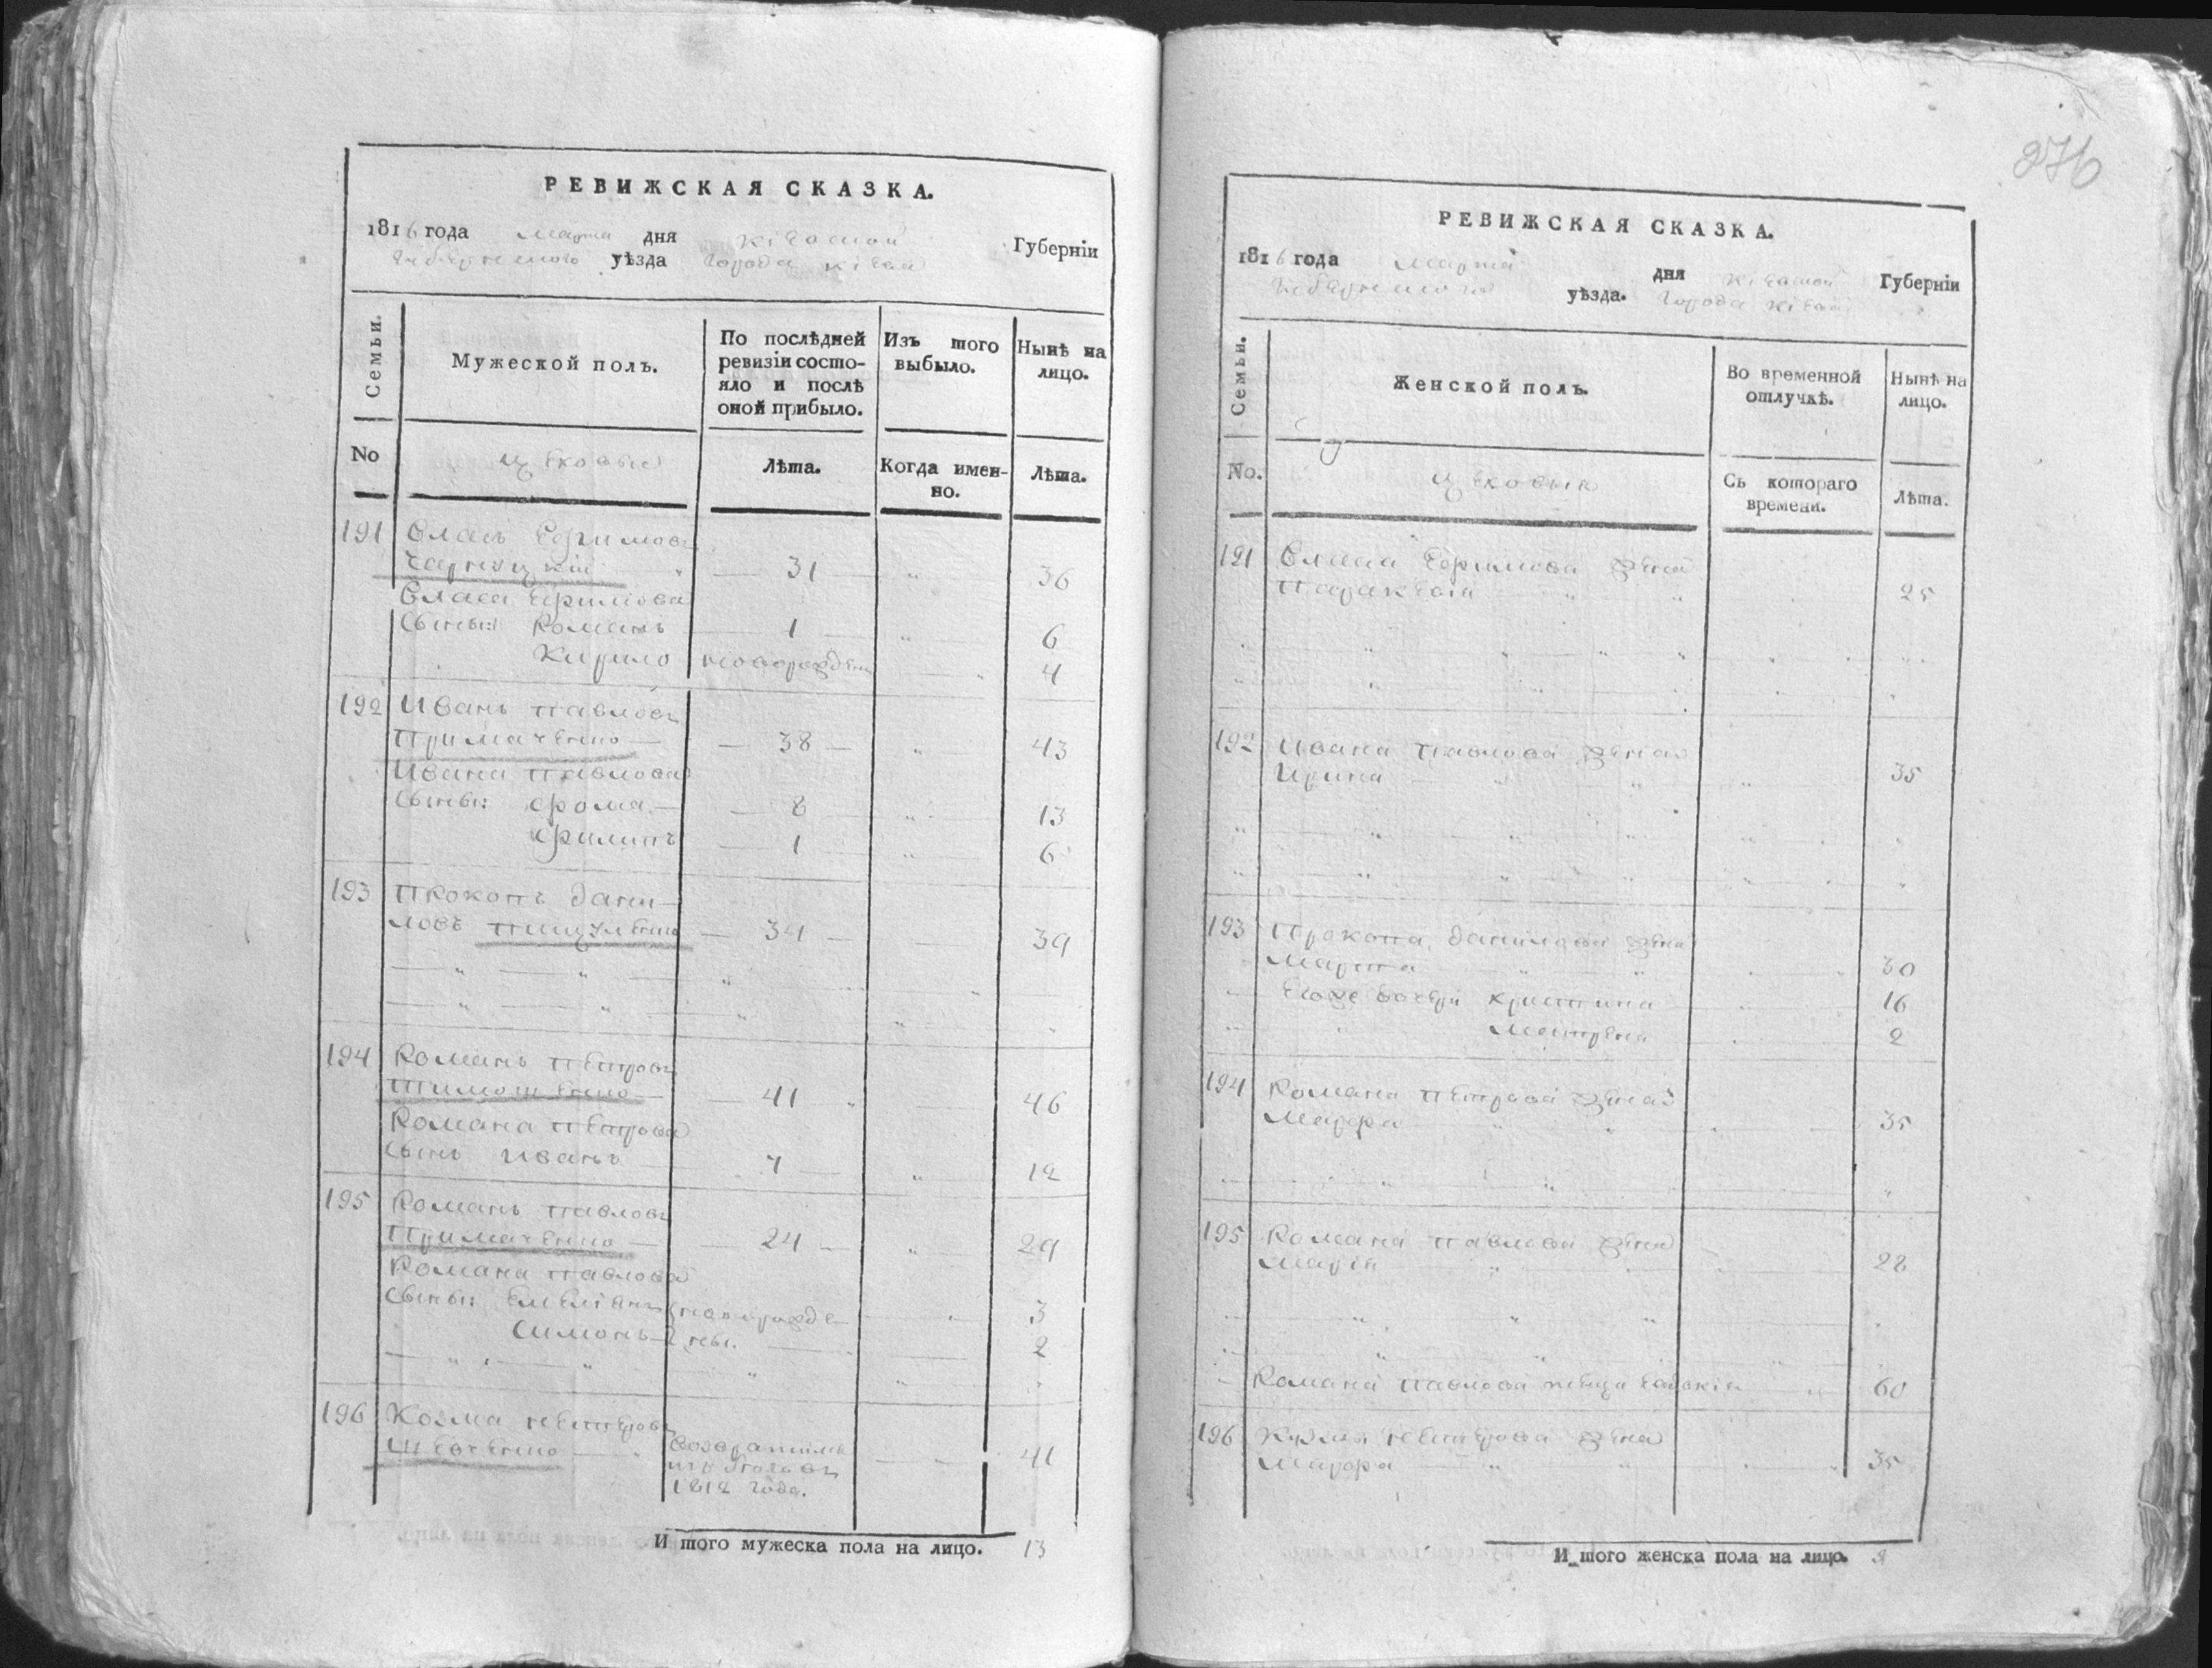 РЕВИЖСКАЯ СКАЗКА.
1816 года Марта дня Кіевской Губерніи
уѣзда города Кіева
Семьи.
Мужеской полъ.
По послѣдней ревизіи состояло и послѣ оной прибыло.
Изъ того выбыло.
Нынѣ на лицо.
No
Цеховые
Лѣта.
Когда именно.
Лѣта.
191 Власъ Ефимовъ
31 " 36
Власа Ефимова
сыны: Романъ 1 " 6
Кирило новорожден " 4
192 Иванъ Павловъ
Примаченко 38 " 43
Ивана Павлова
сыны: Фома 8 " 13
Филипъ 1 " 6
193 Прокопъ Дани-
ловъ 34 39
194 Романъ Петровъ
Тимошенко 41 " 46
Романа Петрова
сынъ Иванъ 7 " 12
195 Романъ Павловъ
Примаченко 24 " 29
Романа Павлова
сыны: Емеліянъ новорожде- " 3
Симонъ ны. 2
196 Козма Нестеровъ
Шевченко 41
1812 года.
И того мужеска пола на лицо. 13
276
РЕВИЖСКАЯ СКАЗКА.
1816 года Марта дня Кіевской Губерніи
уѣзда. города Кіева
Семьи.
Женской полъ.
Во временной отлучкѣ.
Нынѣ на лицо.
No.
Цеховые
Съ котораго времени.
Лѣта.
191 Власа Ефимова жена
25
192 Ивана Павлова жена
Ирина " " " 35
193 Прокопа Данилова жена
Марта " " 30
Егоже дочери Христина 16
" Матрена 2
194 Романа Петрова жена
Марфа " " 35
195 Романа Павлова жена
Марія " 28
Романа Павлова 60
196 Кузмы Нестерова жена
Марфа " " 35
И того женска пола на лицо. 9